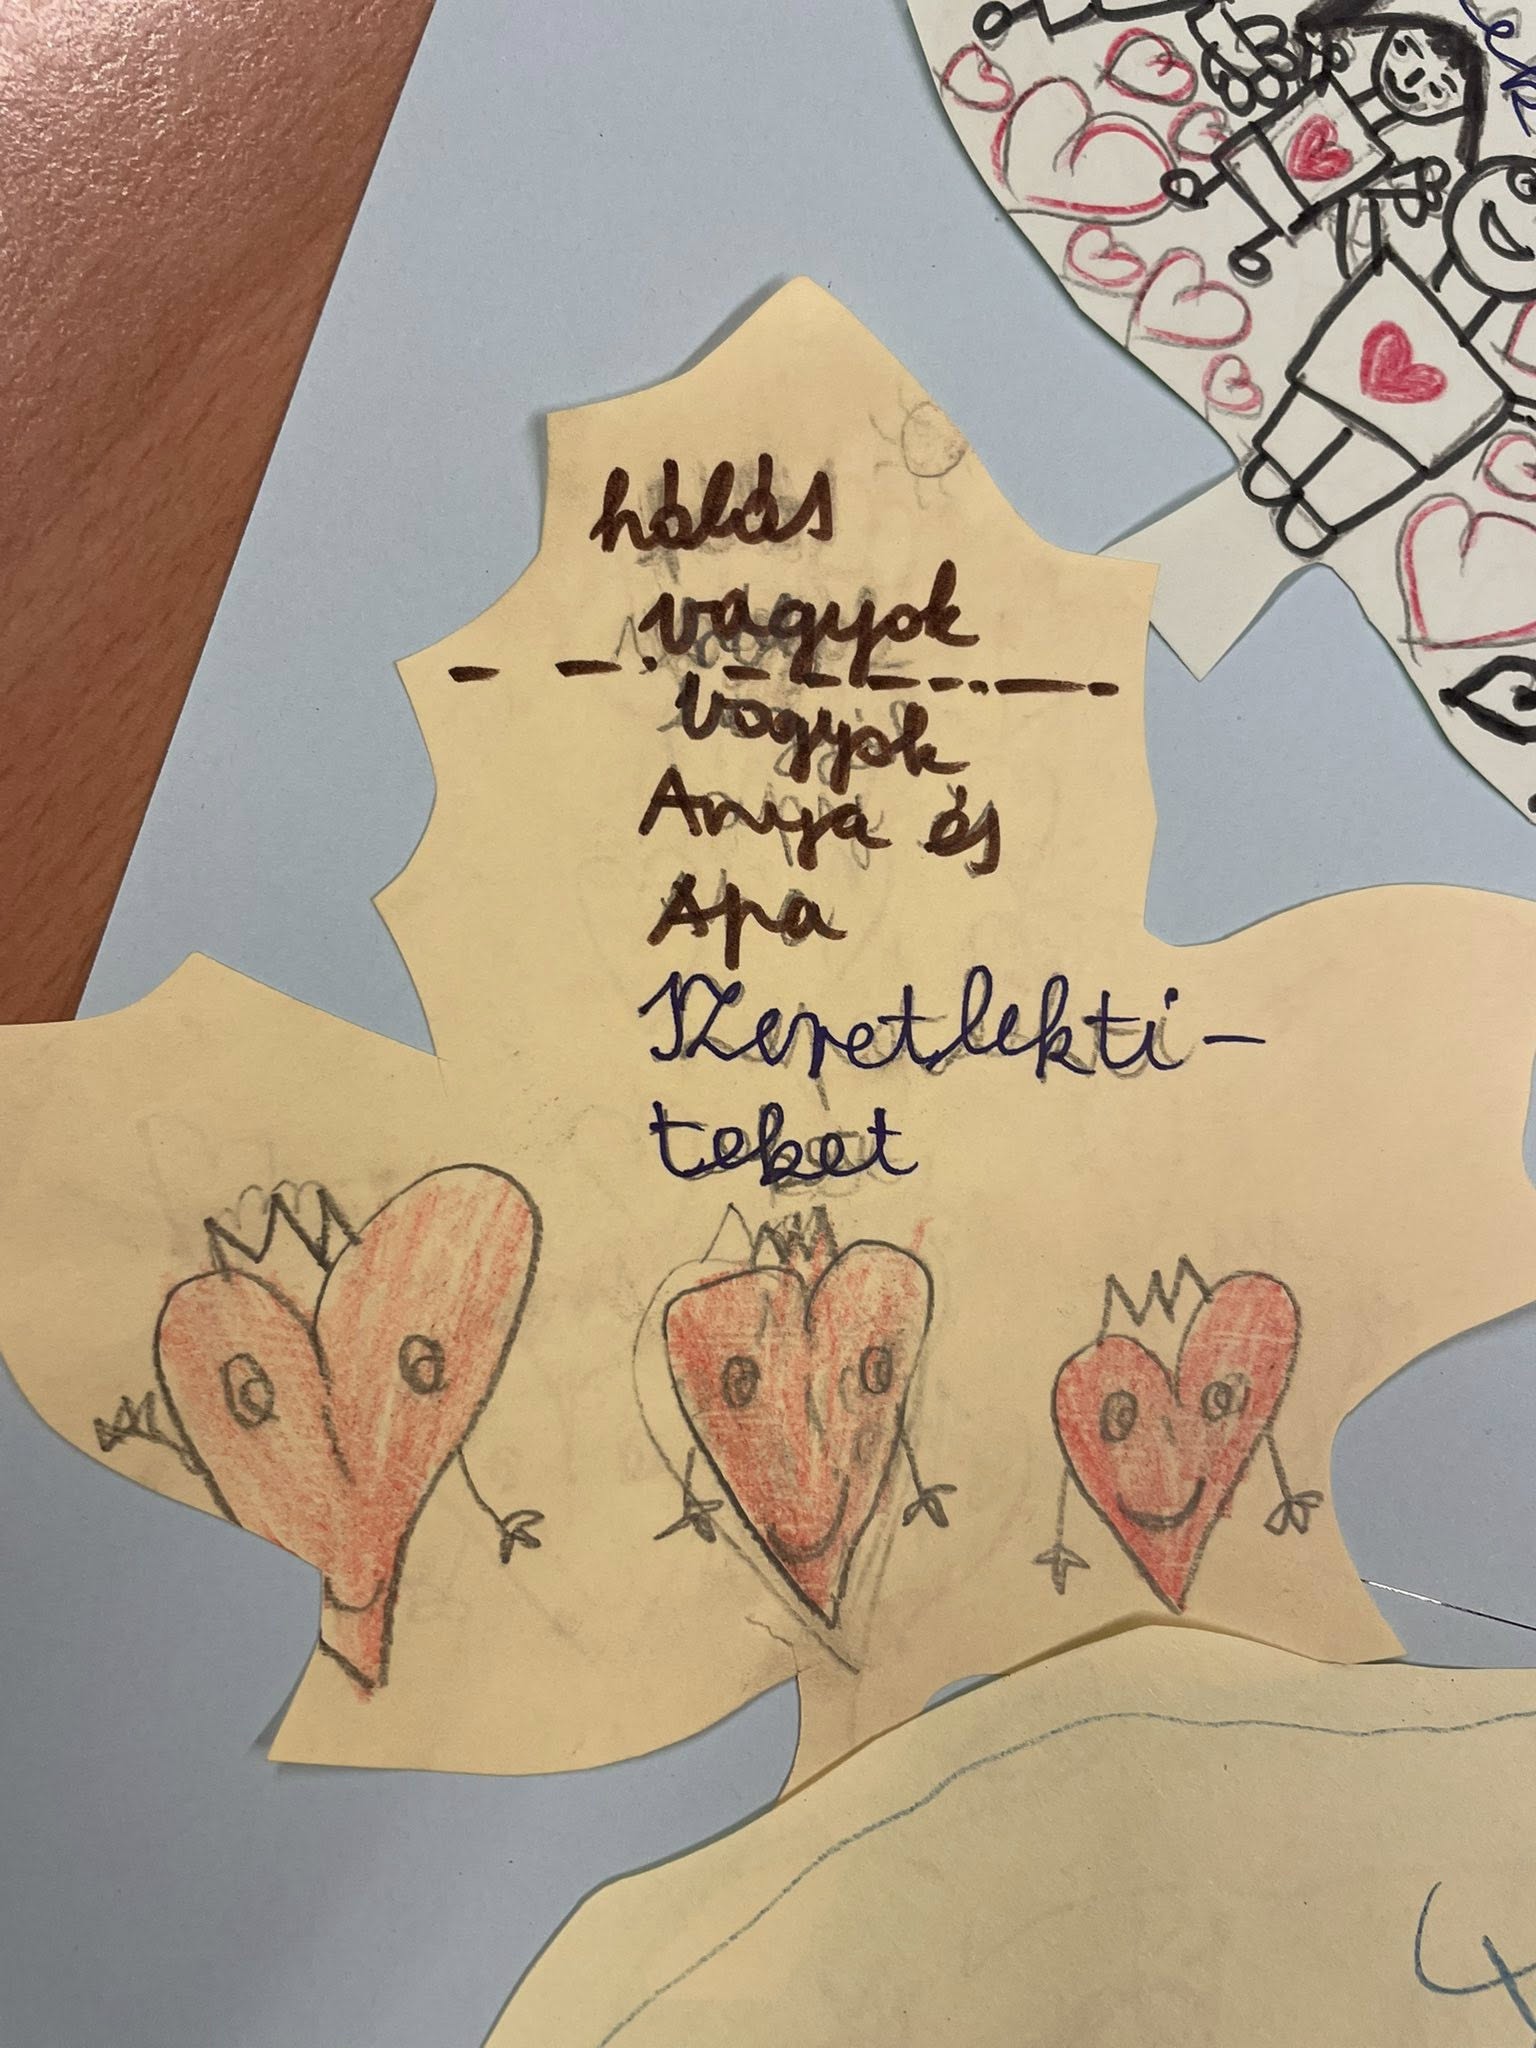 hálás
vagyok
vagyok
Anya és
Apa
Szeretlekti-
teket